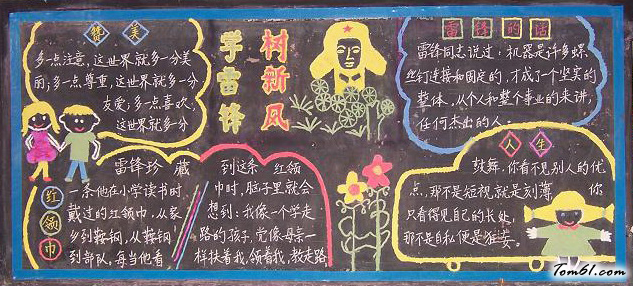 赞美
多点注意,这世界就多一分美
丽;多点尊重,这世界就多一分
友爱;多点喜欢,
这世界就多一分
学雷锋
树新风
雷锋的话
雷锋同志说过:机器是许多螺
丝钉连接和固定的,才成了一个坚美的
整体,从个人和整个事业的来讲,
任何杰出的人
红领巾
雷锋珍藏
一条他在小学读书时
戴过的红领巾,从家
乡到鞍钢,从鞍钢
到部队,每当他看
到这条红领
巾时,脑子里就会
想到:我像一个学走
路的孩子,党像母亲一
样扶着我,领着我,教走路
人生
鼓舞,你看不见别人的优
点,那不是短视就是刻薄 你
只看得见自己的长处,
那不是自私便是狂妄。
Tom61.com